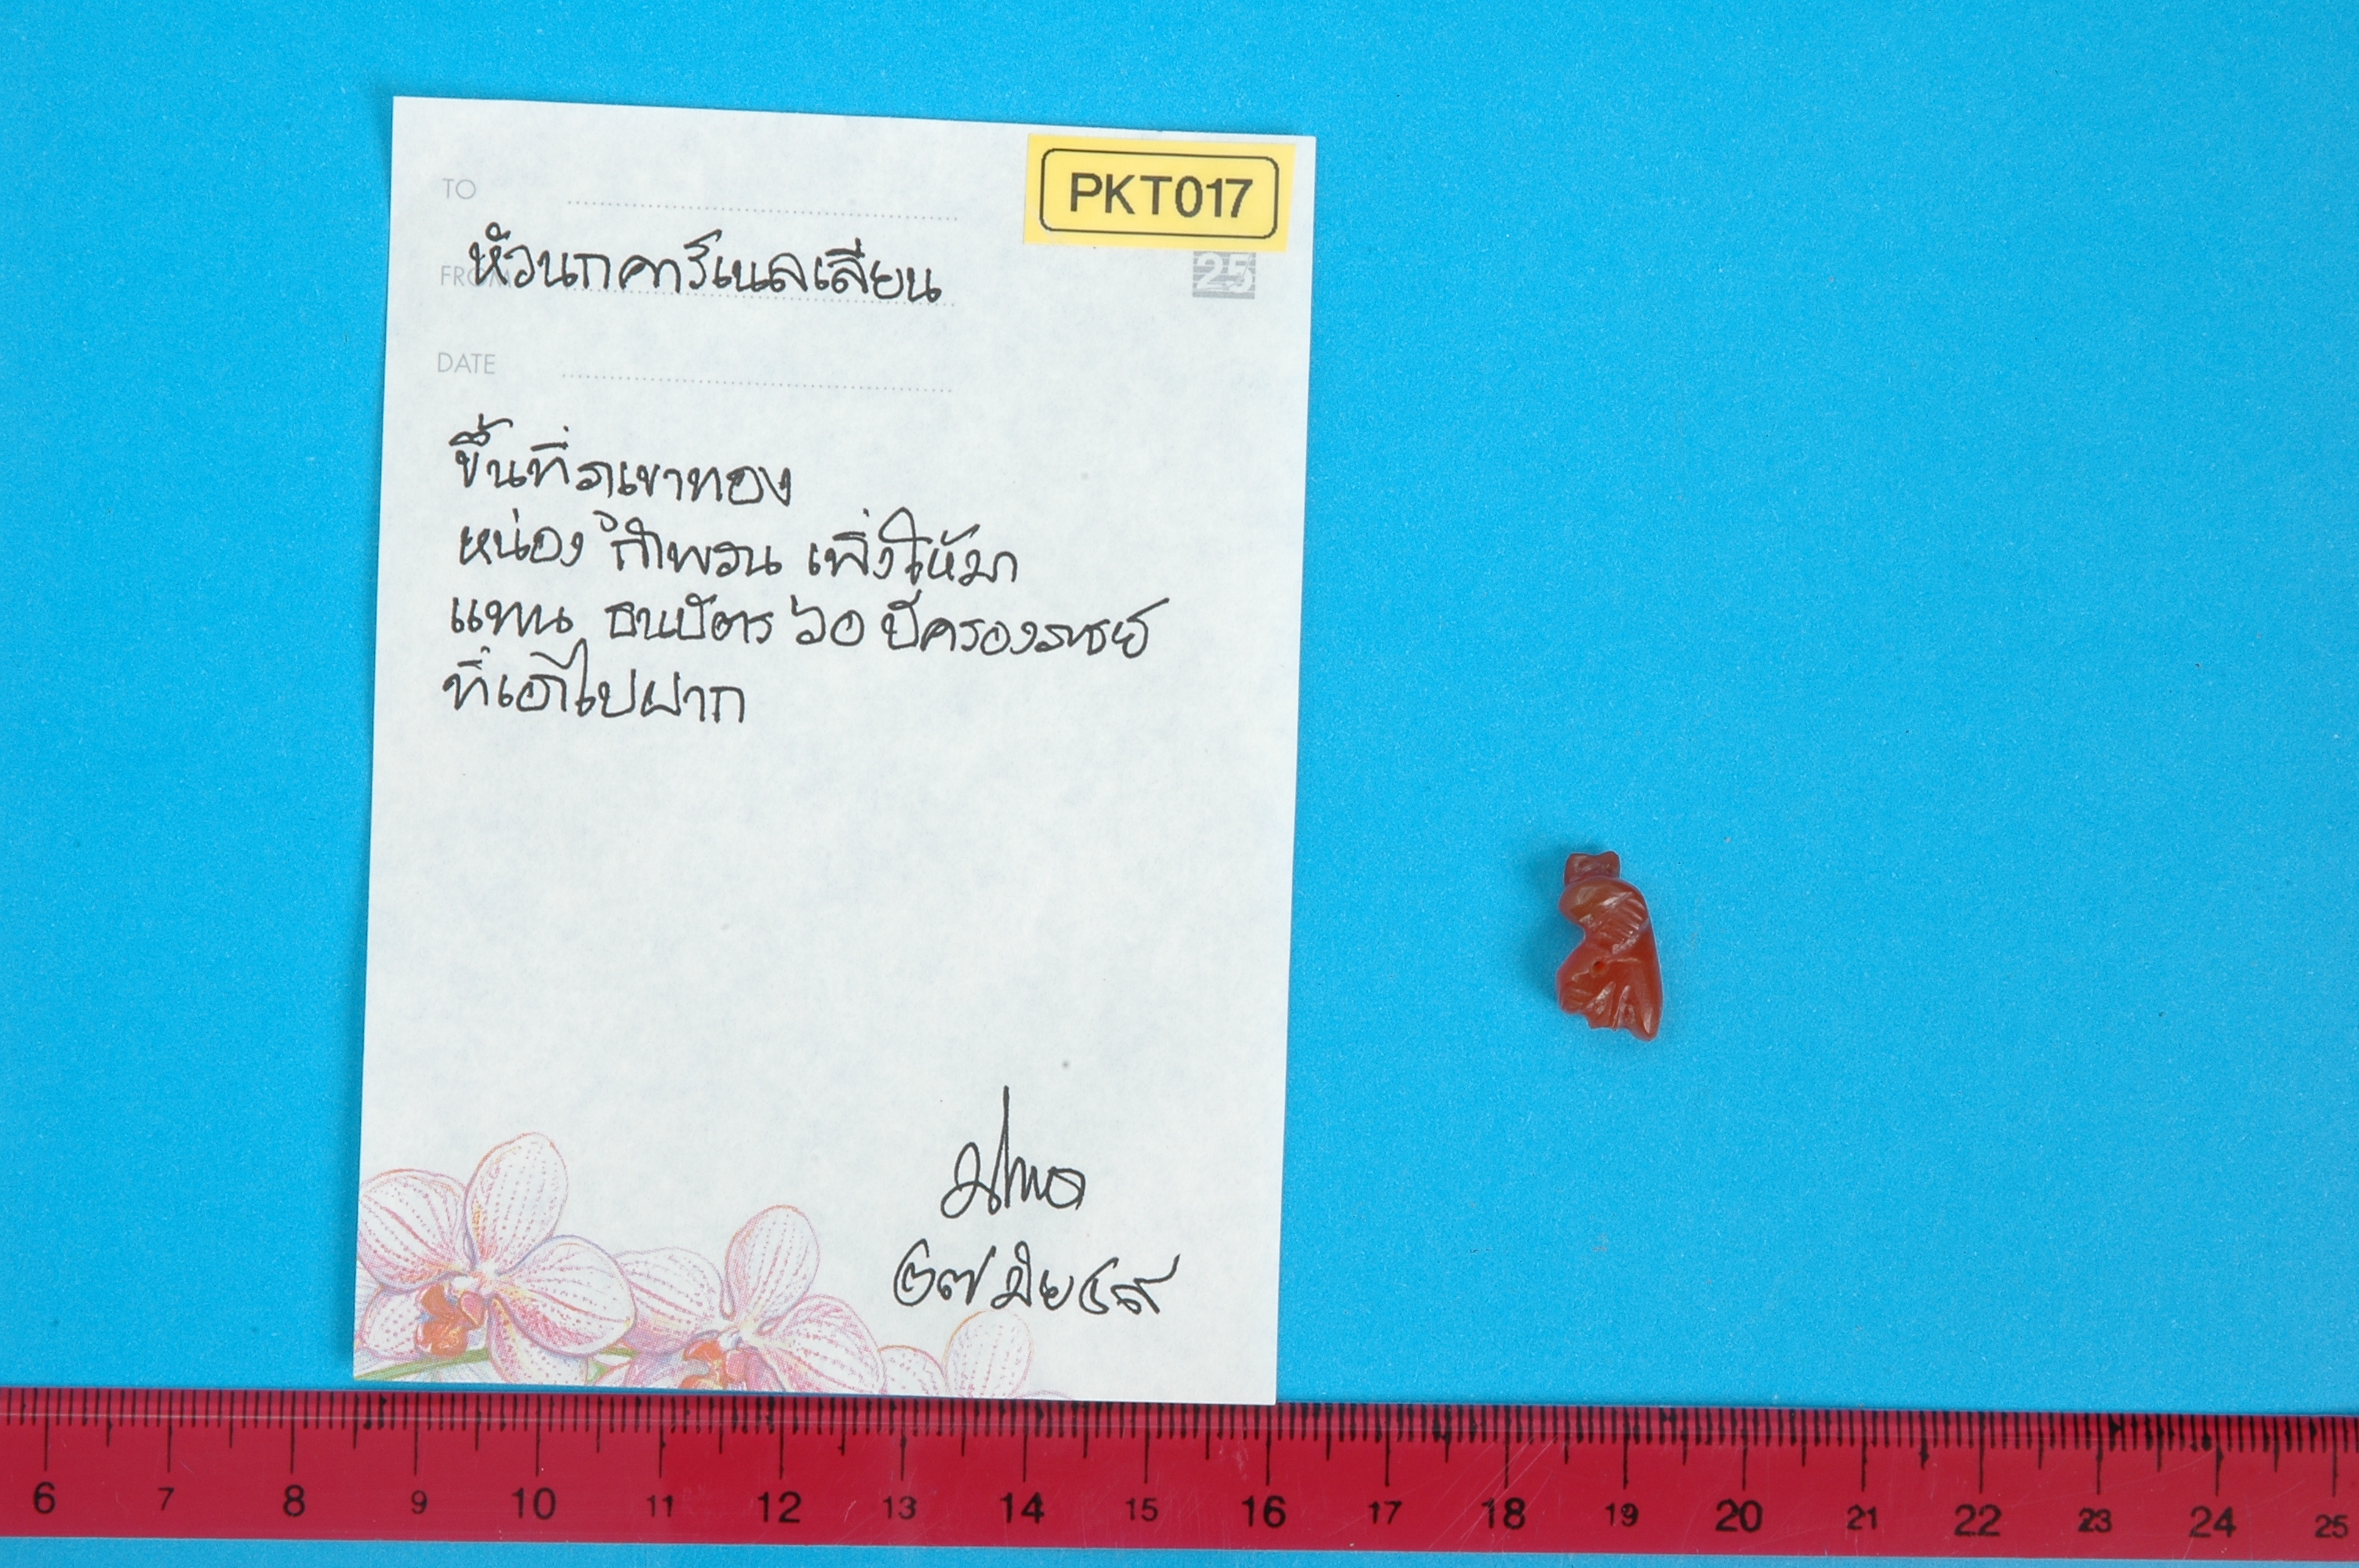 TO
PKT017
FROM
หัวนกคาร์เนลเลี่ยน
25
DATE
ขึ้นที่ภูเขาทอง
หน่อง กำพวน เพิ่งให้มา
แทน ธนบัตร ๖๐ ปีครองราชย์
ที่เอาไปฝาก
๒๗ มิย ๔๙
6 7 8 9 10 11 12 13 14 15 16 17 18 19 20 21 22 23 24 25